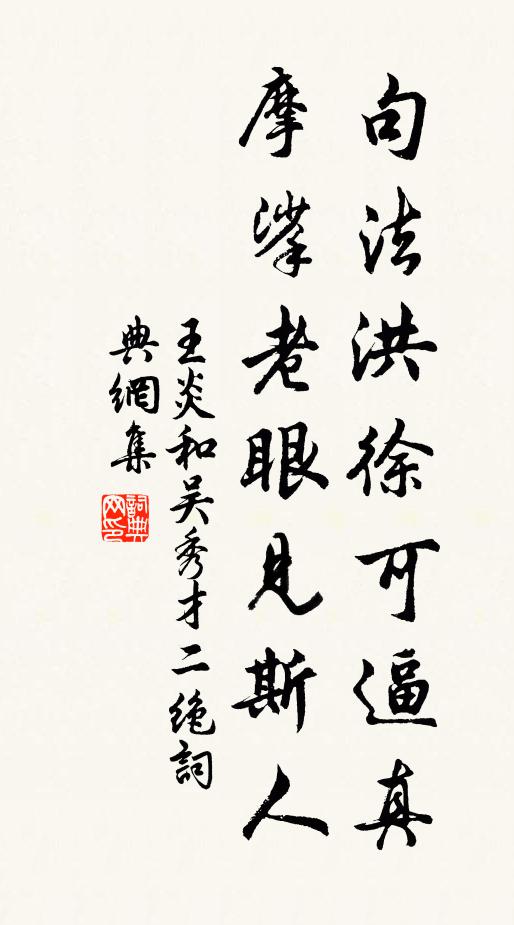 句法洪徐可逼真
摩挲老眼見斯人
王炎和吴秀才二绝詞
典網集
詞典网印